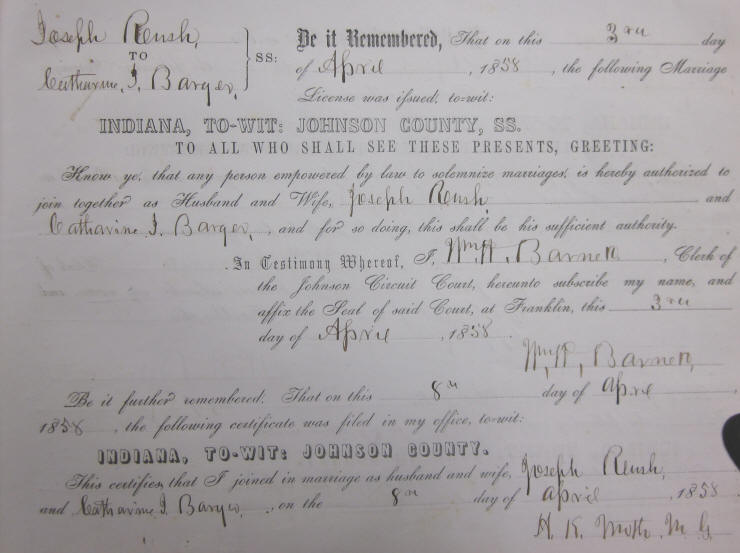 Joseph Rush,
TO
Catharine I. Barger,
SS:
Be it Remembered, That on this 3rd day
of April, 1858, the following Marriage
License was issued, to=wit:
INDIANA, TO-WIT: JOHNSON COUNTY, SS.
TO ALL WHO SHALL SEE THESE PRESENTS, GREETING:
Know ye, that any person empowered by law to solemnize marriages, is hereby authorized to
join together as Husband and Wife, Joseph Rush and
Catharine I. Barger, and for so doing, this shall be his sufficient authority.
In Testimony Whereof, I, Wm H. Barnett, Clerk of
the Johnson Circuit Court, hereunto subscribe my name, and
affix the Seal of said Court, at Franklin, this 3rd
day of April, 1858.
Wm H. Barnett,
Be it further remembered, That on this 8th day of April
1858, the following certificate was filed in my office, to=wit:
INDIANA, TO-WIT: JOHNSON COUNTY.
This certifies, that I joined in marriage as husband and wife, Joseph Rush,
and Catharine I. Barger, on the 8th day of April, 1858
H. K. M. G.